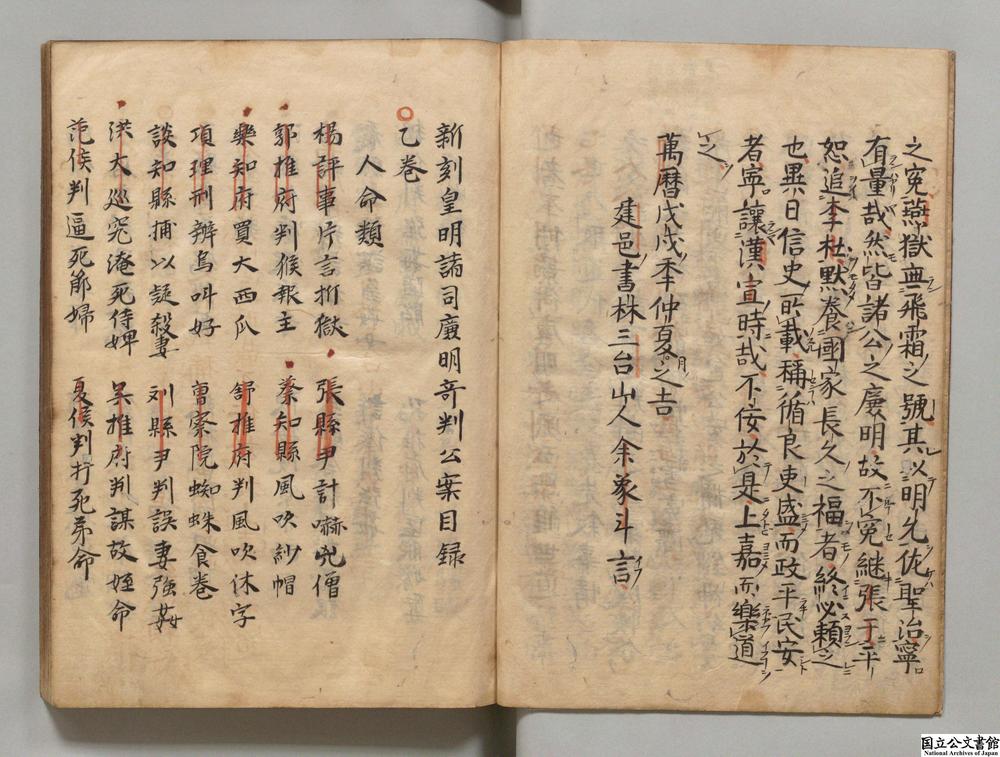 之冤燕獄無飛霜之號其以明允佐聖治寧
有量哉然皆諸公之廉明故不冤継張于平
恕追李杜默養國家長久之福者終必頼之
也異日信史所載稱循良吏盛而政平民安
者寧讓漢宣時哉不佞於是上嘉而樂道
之
萬曆戊戌季仲夏月之吉
建邑書林三台山人余象斗言
新刻皇明諸司廉明奇判公案目録
乙巻
人命類
楊評事片言折獄 張縣尹計嚇兇僧
郭推府判猴報主 蔡知縣風吹紗帽
樂知府買大西瓜 舒推府判風吹休字
項理刑辦烏叫好 曹察院蜘蛛食巻
談知縣捕以疑殺妻 刘縣尹判誤妻強姦
洪大巡究淹死侍婢 吴推府判謀故姪命
范侯判逼死節婦 夏侯判打死弟命
国立公文書館
National Archives of Japan